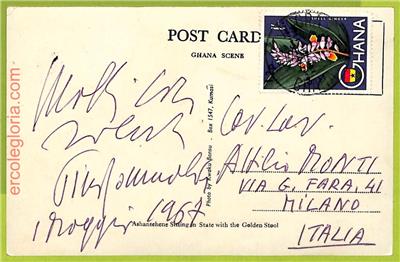 POST CARD
GHANA SCENE
SHELL GINGER
GHANA
Molti cari
saluti
1 Maggio 1967
Cav. Lav.
Attilio MONTI
VIA G. FARA, 41
MILANO
ITALIA
Box 1547, Kumasi
Photo by
Ashantehene Sitting in State with the Golden Stool
ercolegloria.com